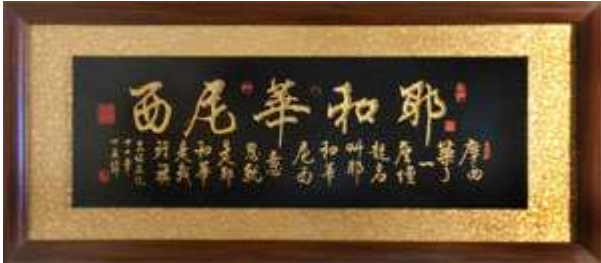 耶和華尼西
摩西
築了
一
座壇
起名
叫耶
和華
尼西
意
思就
是耶
和華
是我
旌旗
出埃及記